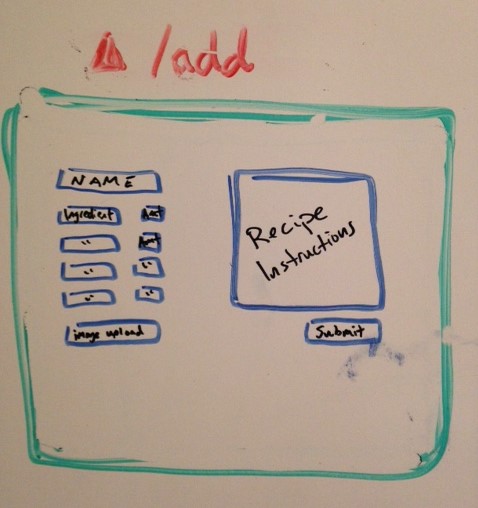 /add
NAME
Ingredient
"
"
" "
" "
image upload
Recipe
Instructions
Submit